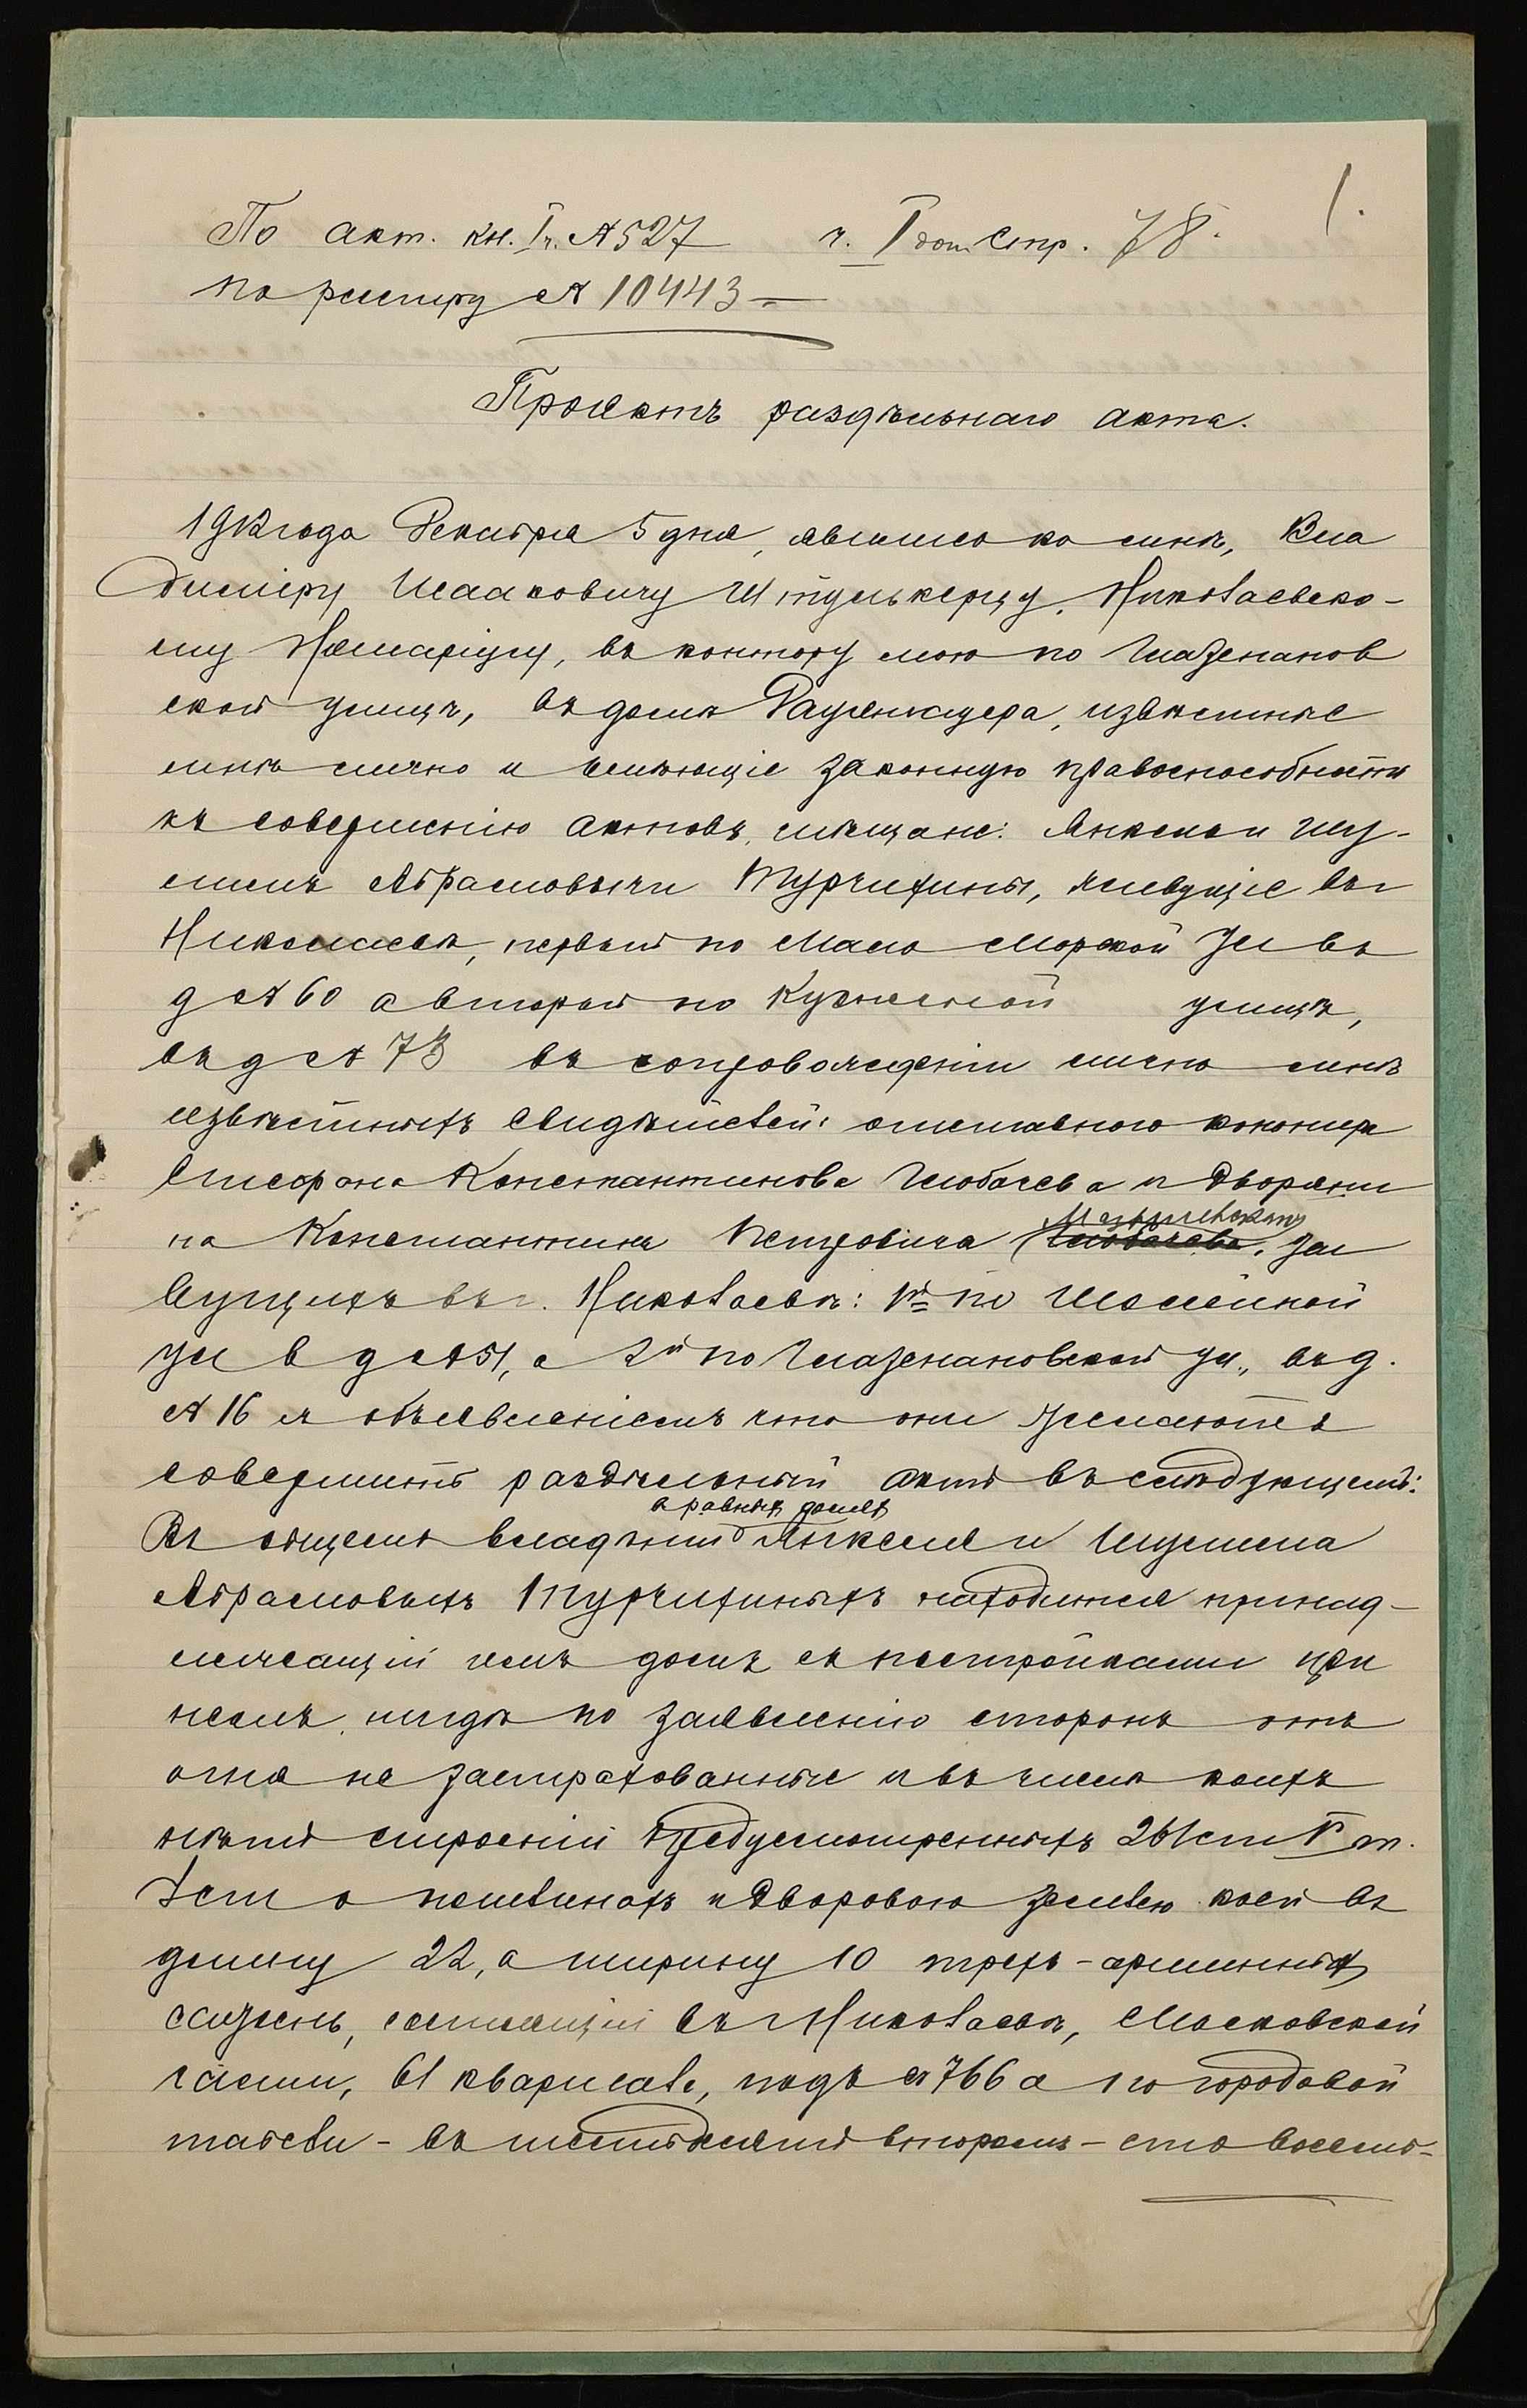 1.
По акт. кн. I ч. № 527 ч. I дот. Стр. 78.
по реестру № 10443 –
Проектъ раздѣльнаго акта.
1912 года Декабря 5 дня, явились ко мнѣ, Вла
димiру Исааковичу Штулькерцу, Николаевско-
му Нотарiусу, въ контору мою по Глазенапов
ской улицѣ, въ домѣ, извѣстные
мнѣ лично и имѣющiе законную правоспособность
къ совершенiю актовъ, мѣщане: Янкель и Шу-
лимъ Абрамовичи Турчихины, живущiе въ г
Николаевѣ, первый по Мало Морской ул въ
д № 60 а второй по Кузнечной улицѣ,
въ д № 73 въ сопровожденiи лично мнѣ
извѣстныхъ свидѣтелей: отставного
Стефана Константинова и Дворяни
на Константина Петровича жи
вущихъ въ г. Николаевѣ: 1й по
ул в д № 51, а 2й по Глазенаповской ул., въ д.
№ 16 и объявленiемъ что они желаютъ
совершить раздѣльный актъ въ слѣдующемъ:
Въ общемъ владѣнiи в равныхъ доляхъ Янкеля и Шулима
Абрамовыхъ Турчихиныхъ находится принад-
лежащiй имъ домъ съ постройками при
немъ, нигдѣ по заявленiю сторонъ отъ
огня не застрахованные и въ числѣ коихъ
нѣтъ строенiй предусмотренныхъ 261 ст V т.
Уст о пошлинахъ и дворовою землею коей въ
длину 22, а ширину 10 трехъ-аршинныхъ
сажень, состоящiй въ г Николаевѣ, Московской
части, 61 квартале, подъ № 766 а по городовой
табели - въ шестьдесятъ второмъ - сто восемь-